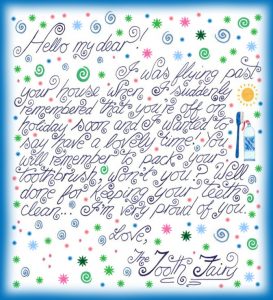 Hello my dear!
I was flying past
your house when I suddenly
remembered that you're off on
holiday soon and I wanted to
say have a lovely time. You
will remember to pack your
toothbrush, won't you? Well
done for keeping your teeth
clean... I'm very proud of you.
Love,
The Tooth Fairy